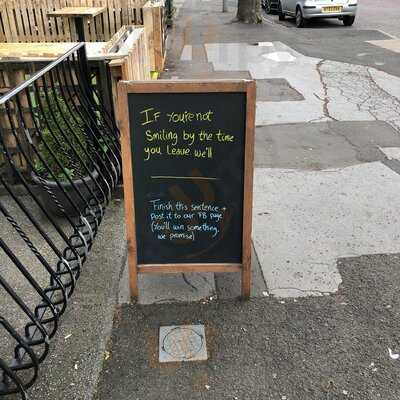 If You're not
Smiling by the time
you Leave we'll
Finish this sentence +
Post it to our FB page
(You'll win something,
we promise)